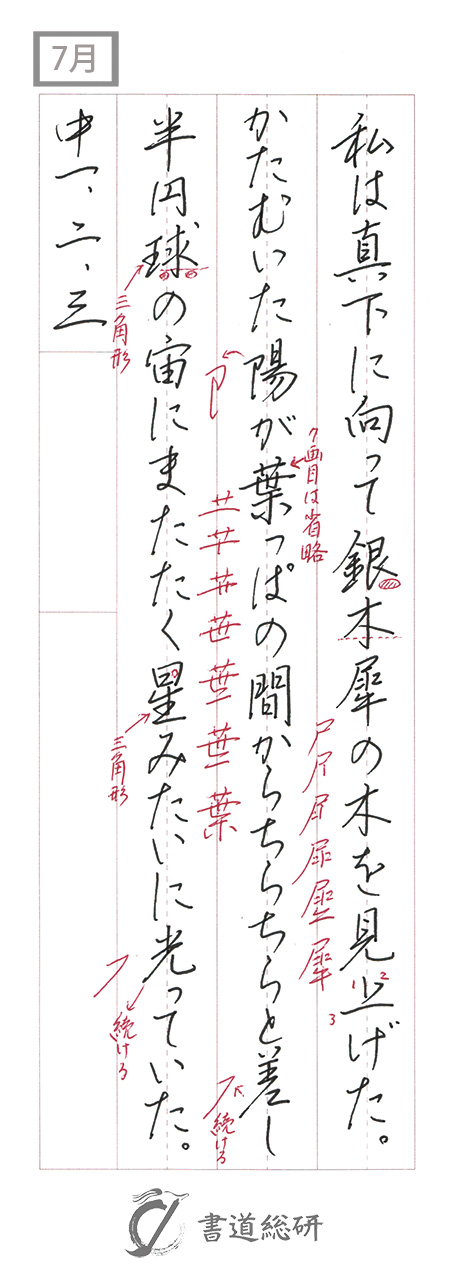 7月
私は真っ下に向って銀木犀の木を見上げた。
かたむいた陽が葉っぱの間からちらちらと差し
半円球の宙にまたたく星みたいに光っていた。
中一、二、三
7画目は省略
三角形
三角形
続ける
続ける
1 2
3
書道総研